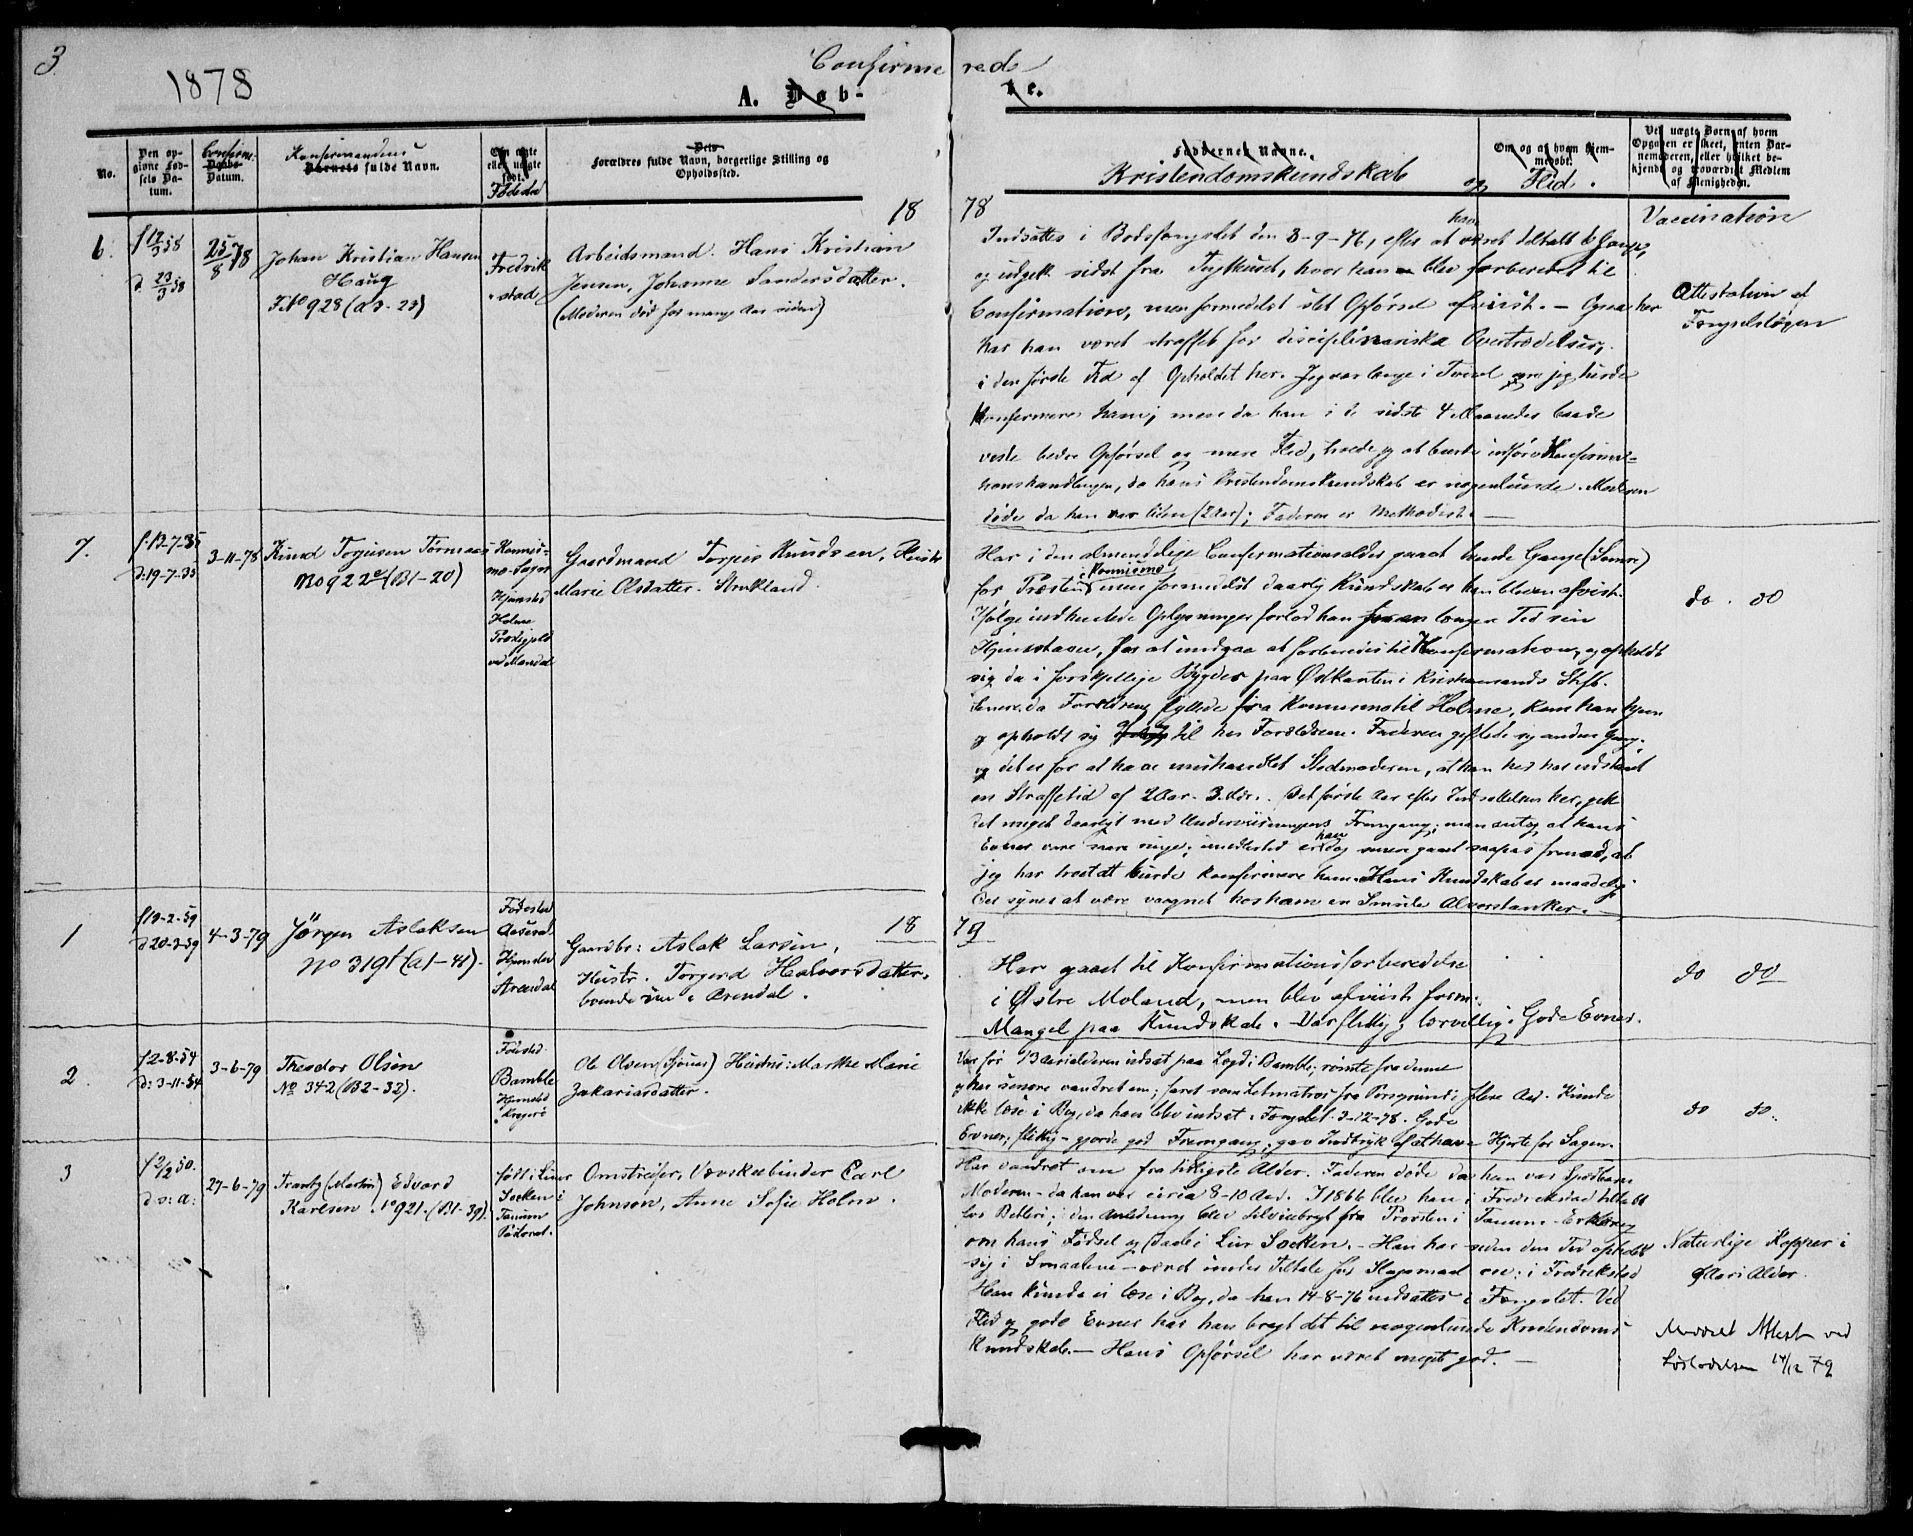 3
1878
Confirme red
A. Døb- te.
No.
Den opgivne Fødsels Datum.
Confirm: Daabs Datum.
Konfirmandens Barnets fulde Navn.
Om ægte eller uægte født. Fødested
Dets Forældres fulde Navn, borgerlige Stilling og Opholdssted.
Faddernes Navne.
Kristendomskundskab og Flid.
Om og af hvem hjemmedøbt.
Ved uægte Børn af hvem Opgaven er skeet, enten Barnemoderen, eller hvilket bekjendt og troværdigt Medlem af Menigheden.
Vaccination
18 78
6.
f 12/3 58
d. 23/3 58
25/8 78
Johan Kristian Hansen
Haug
F No 928 (a3-23)
Fredrik
stad
Arbeidsmand. Hans Kristian
Jensen, Johanne Sandersdatter.
(Moderen død for mange Aar siden)
Indsattes i Bodsfængslet den 8-9-76, efter at have været tiltalt 6 Gange,
og udgik sidst fra Tugthuset, hvor han blev forberedet til
Confirmation, men formedelst slet Opførsel afviist. – Ogsaa her
har han været straffet for disciplinariske Overtrædelser,
i den første Tid af Opholdet her. Jeg var længe i Tvivl om jeg burde
Konfirmere ham; men da han i de sidste 4 Maaneder baade
viste bedre Opførsel og mere Flid, troede jeg at burde udføre Konfirma-
tionshandlingen, da hans Kristendomskundskab er nogenlunde. Moderen
døde da han var liden (2 Aar); Faderen er Methodist. –
Attestation af
Fængselslægen
7.
f. 13-7-35
d: 19-7-35
3-11-78
Knud Torjusen
No 922 (B1-20)
Konnis-
mo-Sogn
Hjemsted
Holme
Præstegjeld
ved Mandal
Gaardmand Torjus Knudsen, Hustr
Marie Olsdatter.
Har i den almindelige Confirmationsalder gaaet
for Præsten i Konnismo men formedelst daarlig Kundskab er han bleven afvist.
Ifølge indhentede Oplysninger forlod han for en længere Tid sin
Hjemstavn, for at undgaa at forberedes til Konfirmation, og opholdt
sig da i forskjellige Bygder paa Østkanten i Kristiansands Stift.
Senere da Forældrene flyttede fra Konnismo til Holme, kom han hjem
og opholdt sig til hos Forældrene. Faderen giftede sig anden Gang,
og det er for at have mishandlet Stedmoderen, at han her har udstaaet
en Straffetid af 2 Aar. 3 Mdr. Det første Aar efter Indsættelsen her, gik
det meget daarligt med Undervisningens Fremgang, man antog at hans
Evner vare svare ringe; imidlertid er han dog senere gaaet saapas fremad, at
jeg har troet at burde konfirmere ham. Hans Kundskab er maadelig
Der synes at være vaagnet hos ham en Smule Alvorstanker. –
do. do
18 79
1
f 13-2-59
d 20-3-59
4-3-79
Jörgen Aslaksen
No 319 (a1-41).
Fødested
Aaseral
Hjemsted
Arendal
Gaardbr: Aslak Larsen,
Hustr. Torgerd Halvorsdatter,
boende i Arendal.
Har gaaet til Konfirmationsforberedelse
i Østre Moland, men blev afviist form.
Mangel paa Kundskab. Var flittig, lærvillig. Gode Evner.
do do
2
f 2-8-54
d: 3-11-54
3-6-79
Theodor Olsen
No 342 (B2-32).
Fødested
Bamble
Hjemsted
Kragerø
Ole Olsen (Sjömd) Hustru: Marthe Marie
Zakariasdatter.
Var før 13 Aarsalderen udsat paa Lægd i Bamble; rømte fra denne
og har senere vandret om; faret som Letmatros fra Porsgrund i flere Aar. Kunde
ikke læse i Bog, da han blev indsat i Fængslet 2-12-78. Gode
Evner, flittig – gjorde god Fremgang; gav Indtryk af at have Hjerte for Sagen.
do do.
3
f 2/2 50.
d s: a:
27-6-79
Frantz (Martin) Edvard
Karlsen. No 921. (B1-39).
født i Liur
Socken i
Tanum
Pastorat.
Omstreifer, Vævskeebinder Carl
Johnson, Anne Sofie Holm.
Har vandret om fra tidligste Alder. Faderen døde da han var Spædbarn
Moderen – da han var circa 8-10 Aar. I 1866 blev han i Fredrikstad tiltalt
for Betleri; i den Anledning blev tilveiebragt fra Præsten i Tanum – Erklæring
om hans Fødsel og Daab i Liur Socken. – Han har siden den Tid opholdt
sig i Smaalene – været under Tiltale for Slagsmaal i Fredrikstad
Han kunde ei læse i Bog, da han 14-8-76 indsattes i Fængslet. Ved
Flid og gode Evner har han bragt det til nogenlunde Kristendoms
Kundskab. – Hans Opførsel har været meget god. –
Naturlige Kopper i
Aars Alder.
Meddelt Attest ved
Løsladelsen 14/12 79